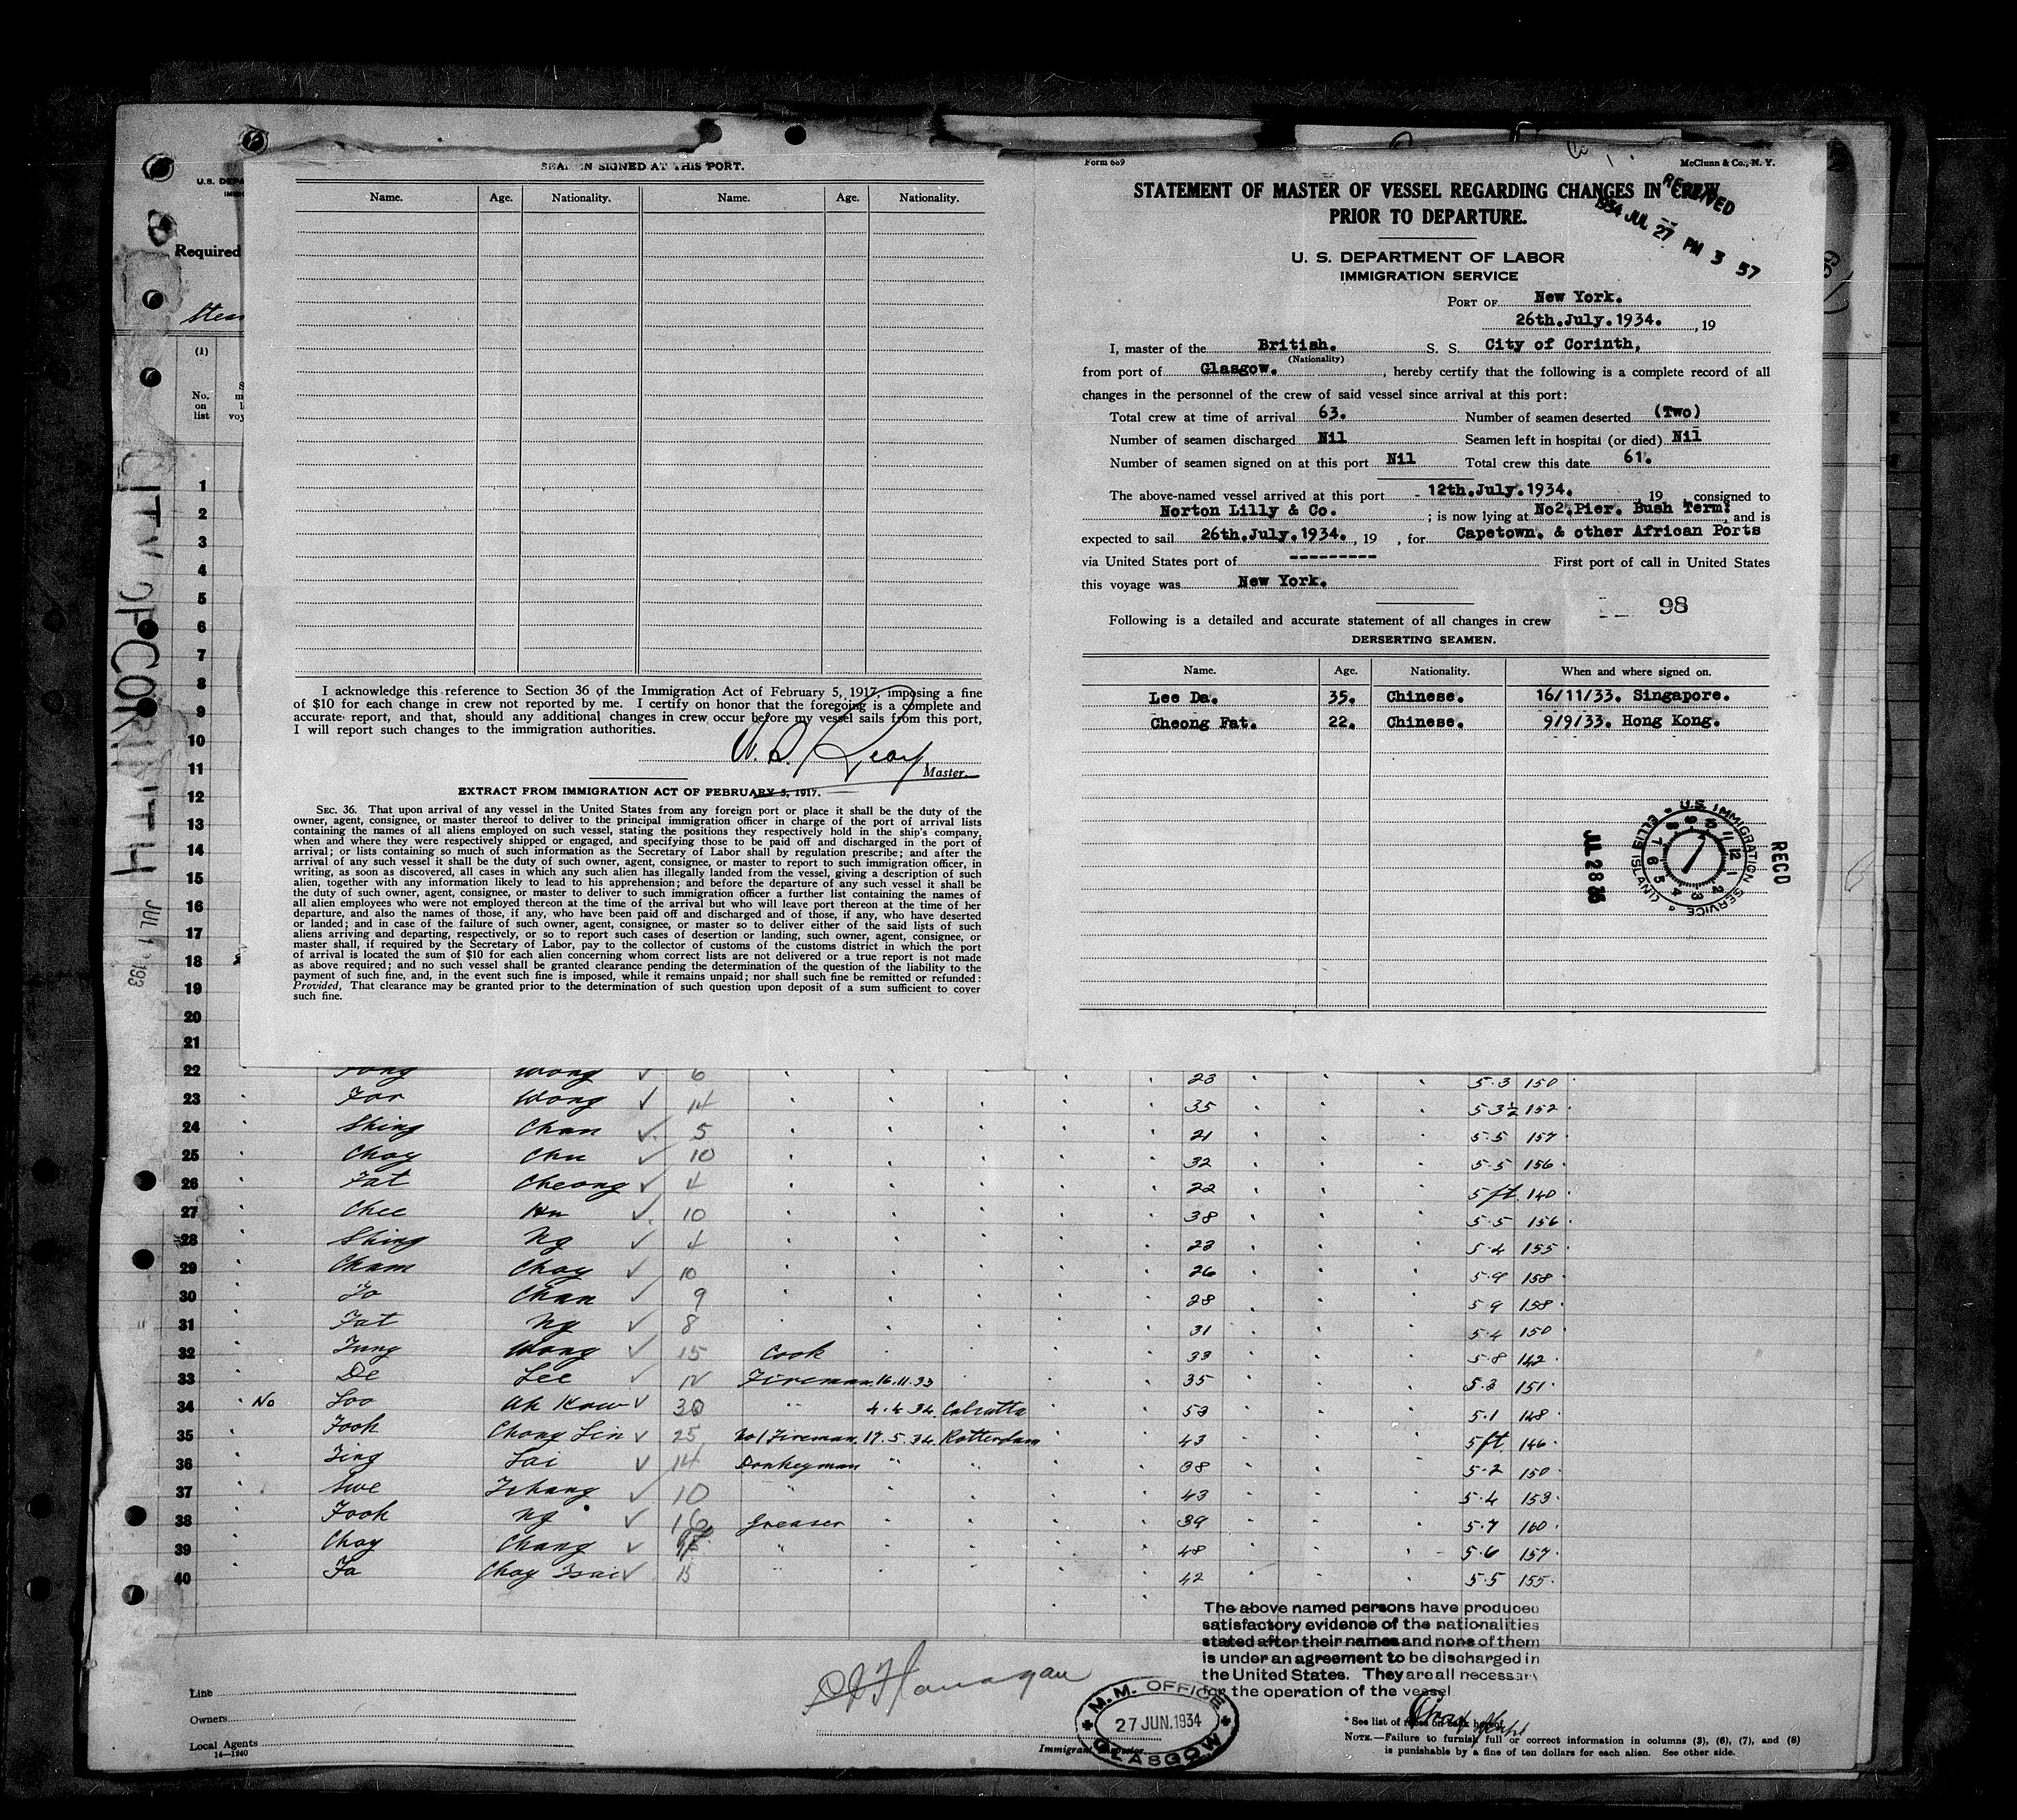 U.S. DEPA
Required
Stea
(1)
No.
on
list
CITY OF CORINTH
SEAMEN SIGNED AT THIS PORT.
Name. Age. Nationality. Name. Age. Nationality.
I acknowledge this reference to Section 36 of the Immigration Act of February 5, 1917, imposing a fine
of $10 for each change in crew not reported by me. I certify on honor that the foregoing is a complete and
accurate report, and that, should any additional changes in crew occur before my vessel sails from this port,
I will report such changes to the immigration authorities.
Master.
EXTRACT FROM IMMIGRATION ACT OF FEBRUARY 5, 1917.
SEC. 36. That upon arrival of any vessel in the United States from any foreign port or place it shall be the duty of the
owner, agent, consignee, or master thereof to deliver to the principal immigration officer in charge of the port of arrival lists
containing the names of all aliens employed on such vessel, stating the positions they respectively hold in the ship's company,
when and where they were respectively shipped or engaged, and specifying those to be paid off and discharged in the port of
arrival; or lists containing so much of such information as the Secretary of Labor shall by regulation prescribe; and after the
arrival of any such vessel it shall be the duty of such owner, agent, consignee, or master to report to such immigration officer, in
writing, as soon as discovered, all cases in which any such alien has illegally landed from the vessel, giving a description of such
alien, together with any information likely to lead to his apprehension; and before the departure of any such vessel it shall be
the duty of such owner, agent, consignee, or master to deliver to such immigration officer a further list containing the names of
all alien employees who were not employed thereon at the time of the arrival but who will leave port thereon at the time of her
departure, and also the names of those, if any, who have been paid off and discharged and of those, if any, who have deserted
or landed; and in case of the failure of such owner, agent, consignee, or master so to deliver either of the said lists of such
aliens arriving and departing, respectively, or so to report such cases of desertion or landing, such owner, agent, consignee, or
master shall, if required by the Secretary of Labor, pay to the collector of customs of the customs district in which the port
of arrival is located the sum of $10 for each alien concerning whom correct lists are not delivered or a true report is not made
as above required; and no such vessel shall be granted clearance pending the determination of the question of the liability to the
payment of such fine, and, in the event such fine is imposed, while it remains unpaid; nor shall such fine be remitted or refunded:
Provided, That clearance may be granted prior to the determination of such question upon deposit of a sum sufficient to cover
such fine.
Form 689 McClunn & Co., N. Y.
STATEMENT OF MASTER OF VESSEL REGARDING CHANGES IN CREW
PRIOR TO DEPARTURE.
RECEIVED
1934 JUL 27 PM 3 57
U. S. DEPARTMENT OF LABOR
IMMIGRATION SERVICE
PORT OF New York.
26th.July.1934. , 19
I, master of the British. S. S. City of Corinth,
(Nationality)
from port of Glasgow. , hereby certify that the following is a complete record of all
changes in the personnel of the crew of said vessel since arrival at this port:
Total crew at time of arrival 63. Number of seamen deserted (Two)
Number of seamen discharged Nil Seamen left in hospital (or died) Nil
Number of seamen signed on at this port Nil Total crew this date 61.
The above-named vessel arrived at this port - 12th.July.1934. 19 , consigned to
Norton Lilly & Co. ; is now lying at No2.Pier. Bush Term: and is
expected to sail 26th.July.1934. , 19 , for Capetown. & other African Ports
via United States port of --------- First port of call in United States
this voyage was New York.
98
Following is a detailed and accurate statement of all changes in crew
DERSERTING SEAMEN.
Name. Age. Nationality. When and where signed on.
Lee Da. 35. Chinese. 16/11/33. Singapore.
Cheong Fat. 22. Chinese. 9/9/33. Hong Kong.
U.S. IMMIGRATION SERVICE ELLIS ISLAND
RECD
1
2
3
4
5
6
7
8
9
10
11
12
13
14
15
16
17
18
19
20
21
22 Wong 6 23 5.3 150
23 Wong 14 35 5 3½ 152
24 Shing Chan 5 21 5.5 157
25 Choy Chu 10 32 5.5 156
26 Fat Cheong 4 22 5 ft. 140
27 Chee Hu 10 38 5.5 156
28 Shing Ng 4 23 5.4 155
29 Cham Choy 10 26 5.9 158
30 Chan 9 28 5 9 158
31 Fat Ng 8 31 5.4 150
32 Fung Wong 15 Cook 33 5.8 142
33 De Lee Fireman 16.11.33 35 5.3 151
34 No Loo Ah Kow 30 4.4.34 Calcutta 53 5.1 148
35 Fook Chong Lin 25 No1 Fireman 17.5.34 Rotterdam 43 5 ft 146
36 Lai 14 Donkeyman 38 5.2 150
37 Swe 10 43 5.4 153
38 Fook Ng 16 Greaser 39 5.7 160
39 Choy Chang 48 5.6 157
40 Fa Choy 42 5.5 155
The above named persons have produced
satisfactory evidence of the nationalities
stated after their names and none of them
is under an agreement to be discharged in
the United States. They are all necessary
for the operation of the vessel
Line
Owners
Local Agents
14—1240
Immigrant Inspector.
M.M. OFFICE
27 JUN.1934
GLASGOW
* See list of races on back hereof.
NOTE.—Failure to furnish full or correct information in columns (3), (6), (7), and (8)
is punishable by a fine of ten dollars for each alien. See other side.